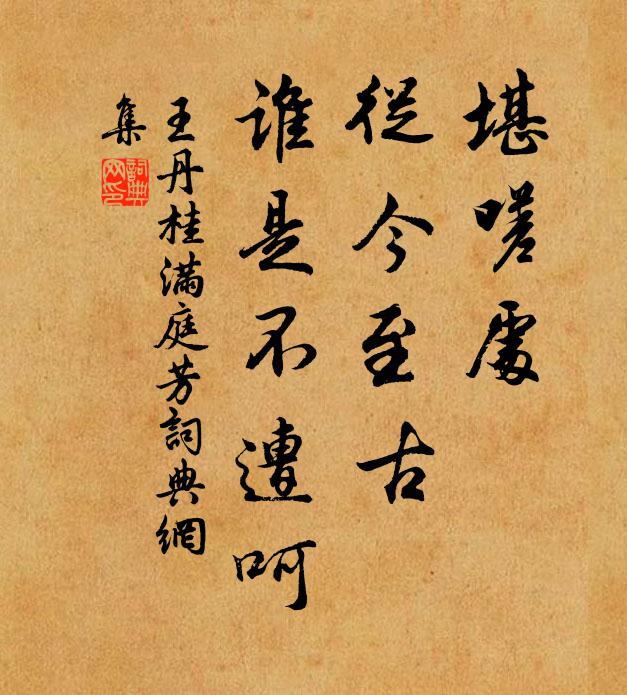 堪嗟處
從今至古
誰是不遭呵
王丹桂滿庭芳詞典網
集
詞典網印